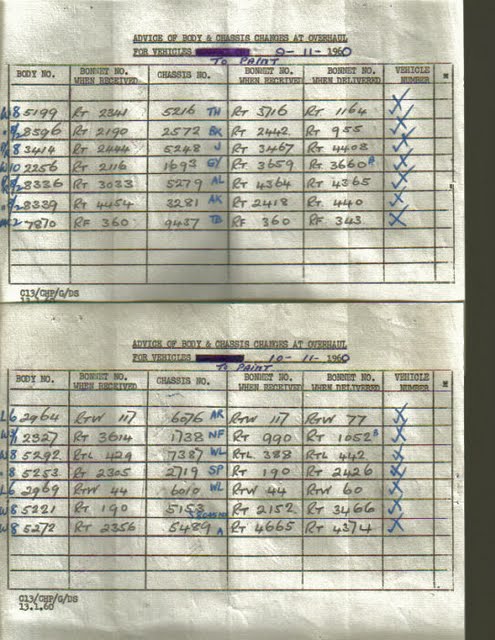 ADVICE OF BODY & CHASSIS CHANGES AT OVERHAUL
FOR VEHICLES 9-11-1960
TO PAINT
BODY NO. BONNET NO. WHEN RECEIVED CHASSIS NO. BONNET NO. WHEN DELIVERED VEHICLE NUMBER
W8 5199 RT 2341 5216 TH RT 3716 RT 1164
8596 RT 2190 2572 BK RT 2442 RT 955
8 3414 RT 2444 5248 J RT 3467 RT 4408
W10 2256 RT 2116 1693 GY RT 3659 RT 3660 A
8336 RT 3033 5279 AL RT 4364 RT 4365
8339 RT 4454 3281 AK RT 2418 RT 440
7870 RF 360 9437 TB RF 360 RF 343
C13/CHP/G/DS
ADVICE OF BODY & CHASSIS CHANGES AT OVERHAUL
FOR VEHICLES 10-11-1960
TO PAINT
BODY NO. BONNET NO. WHEN RECEIVED CHASSIS NO. BONNET NO. WHEN DELIVERED VEHICLE NUMBER
L6 2964 RTW 117 6076 AR RTW 117 RTW 77
2327 RT 3614 1738 NF RT 990 RT 1052 B
W8 5292 RTL 429 7387 WL RTL 388 RTL 442
8 5253 RT 2305 2719 SP RT 190 RT 2426
L6 2969 RTW 44 6010 WL RTW 44 RTW 60
W8 5221 RT 190 5153 RT 2152 RT 3466
W8 5272 RT 2356 5489 A RT 4665 RT 4374
C13/CHP/G/DS
13.1.60